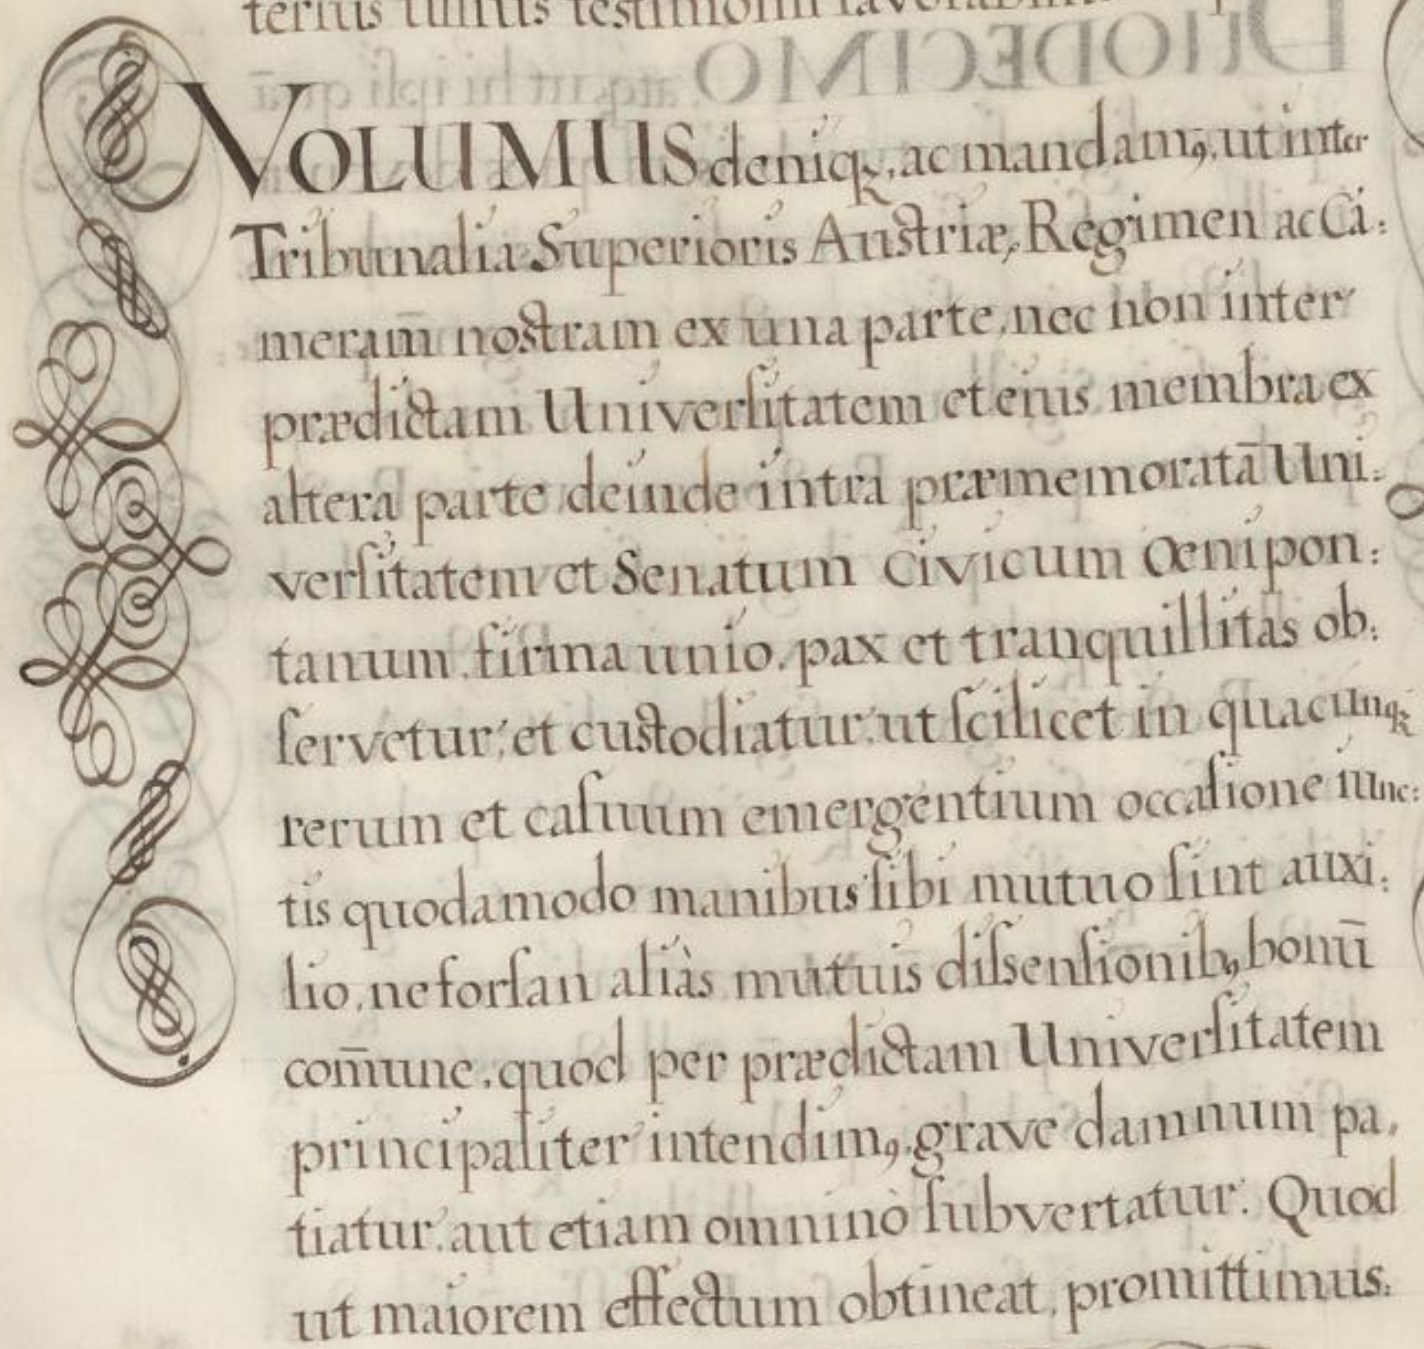 VOLUMUS deniqꝫ, ac mandamꝰ, ut inter
Tribunalia Superioris Austriæ, Regimen ac Ca:
meram̄ nostram ex una parte, nec non inter
prædictam Univerſitatem et eius membra ex
altera parte, deinde intra præmemoratā Uni:
verſitatem et Senatum Civicum Œnipon:
tanum, firma unio, pax et tranquillitas ob:
ſervetur, et custodiatur, ut ſcilicet in quacunqꝫ
rerum et caſuum emergentium occaſione iunc:
tis quodamodo manibus ſibi mutuo ſint auxi:
lio, ne forſan aliàs mutuis diſsenſionibꝰ, bonū
com̄une, quod per prædictam Univerſitatem
principaliter intendimꝰ, grave damnum pa,
tiatur, aut etiam omninò ſubvertatur. Quod
ut maiorem effectum obtineat, promittimus: